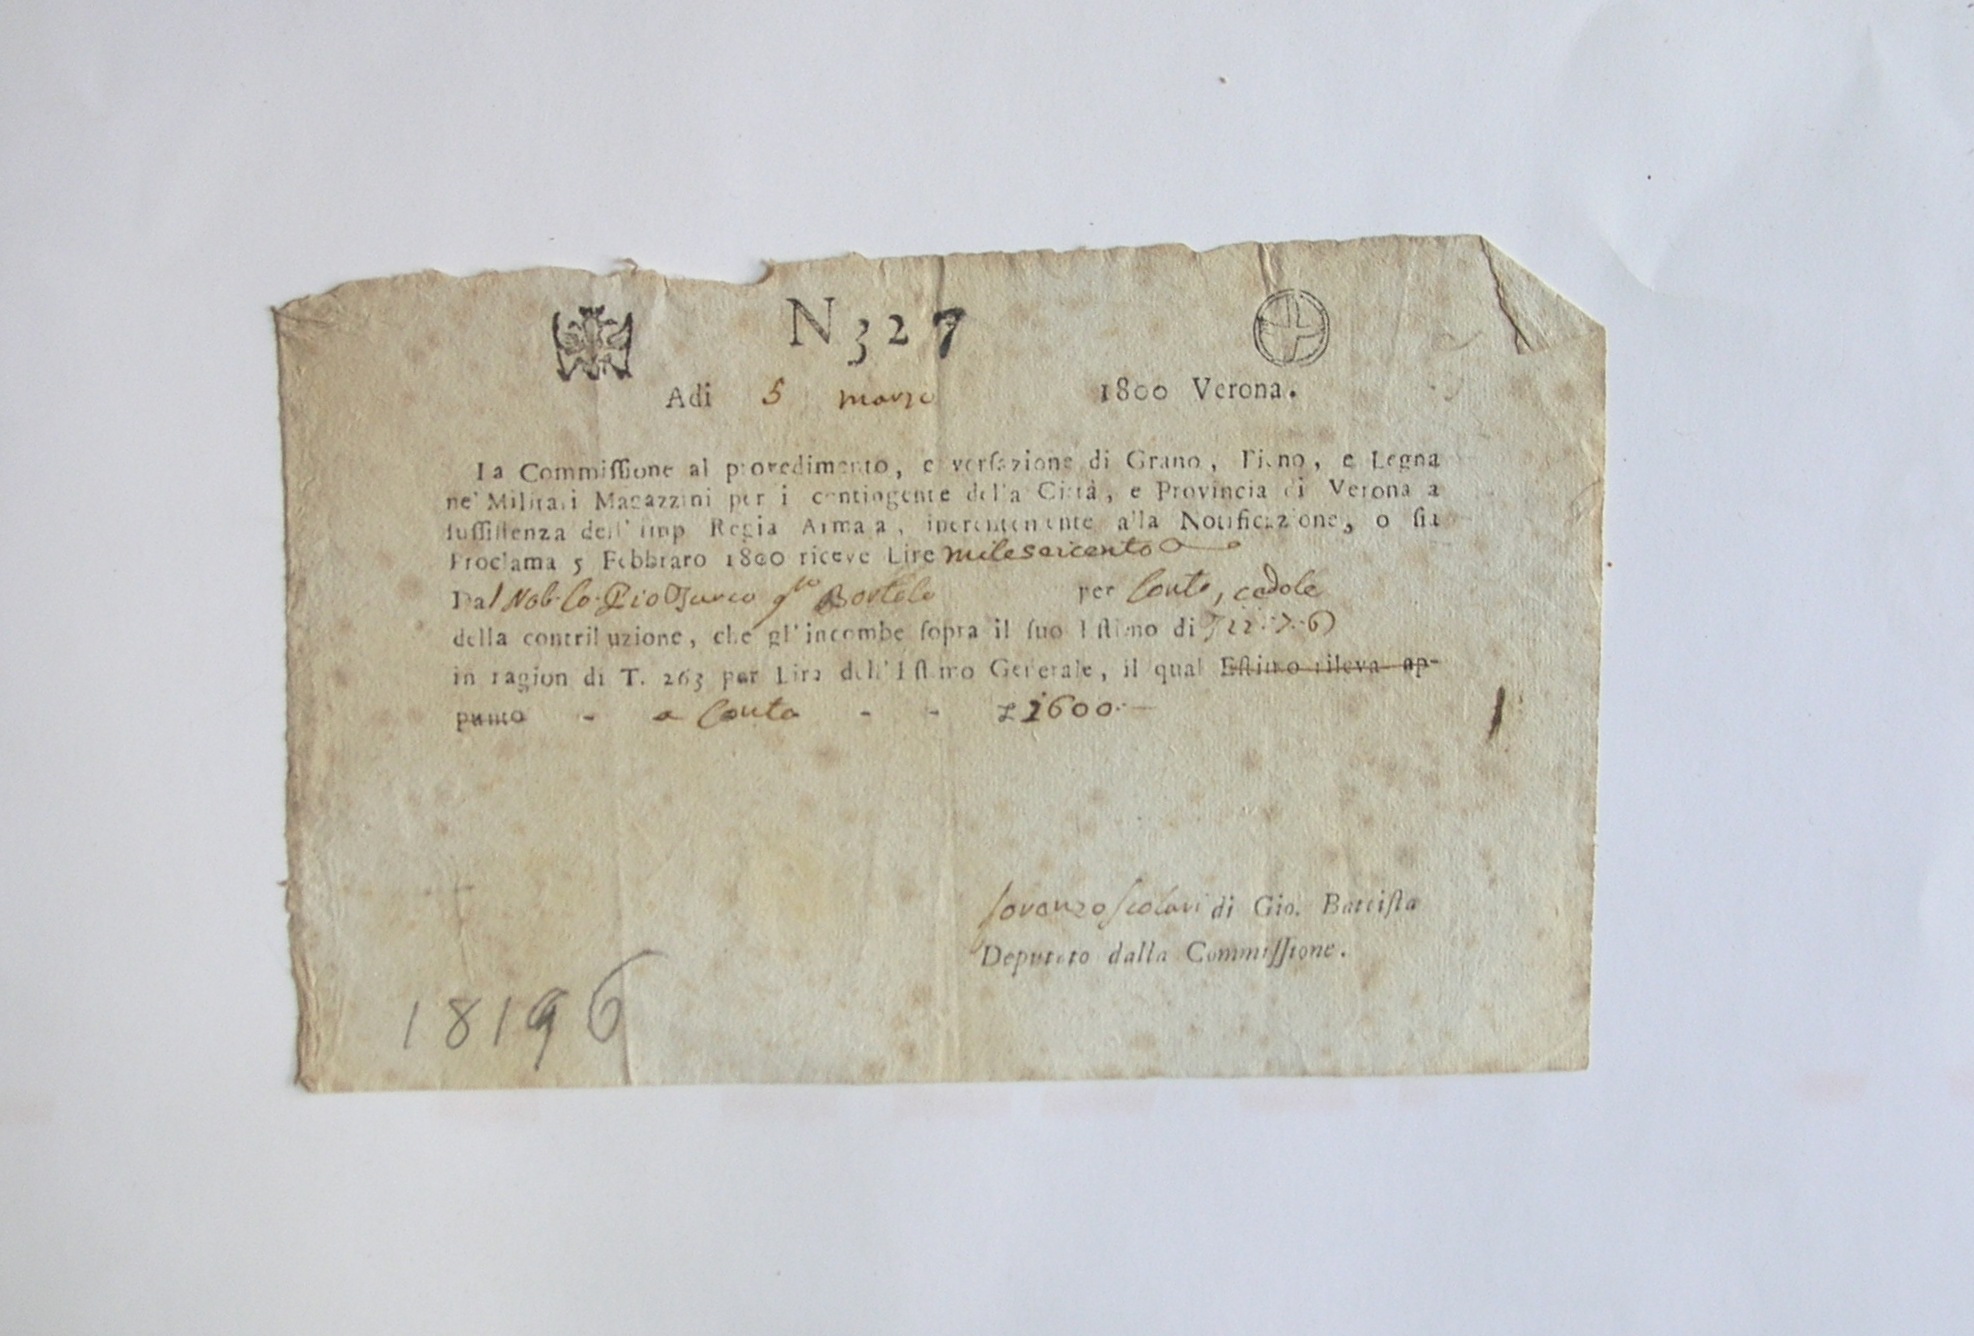 N 327
Adi 5 marzo 1800 Verona.
La Commiſſione al provedimento, e verſazione di Grano, Fieno, e Legna
ne' Militari Magazzini per i contingente della Città, e Provincia di Verona a
ſuſſiſtenza dell' Imp Regia Armata, inerentemente alla Notificazione, o ſia
Proclama 5 Febbraro 1800 riceve Lire mileseicento
Dal Nob. Co. Pio Turco qm Bortolo per Conto,
della contribuzione, che gl'incombe ſopra il ſuo Eſtimo di
in ragion di T. 263 per Lira dell'Eſtimo Generale, il qual Eſtimo rileva ap-
punto - a Conto - - £ 1600.-
Lorenzo Scolari di Gio. Battiſta
Deputato dalla Commiſſione.
18196